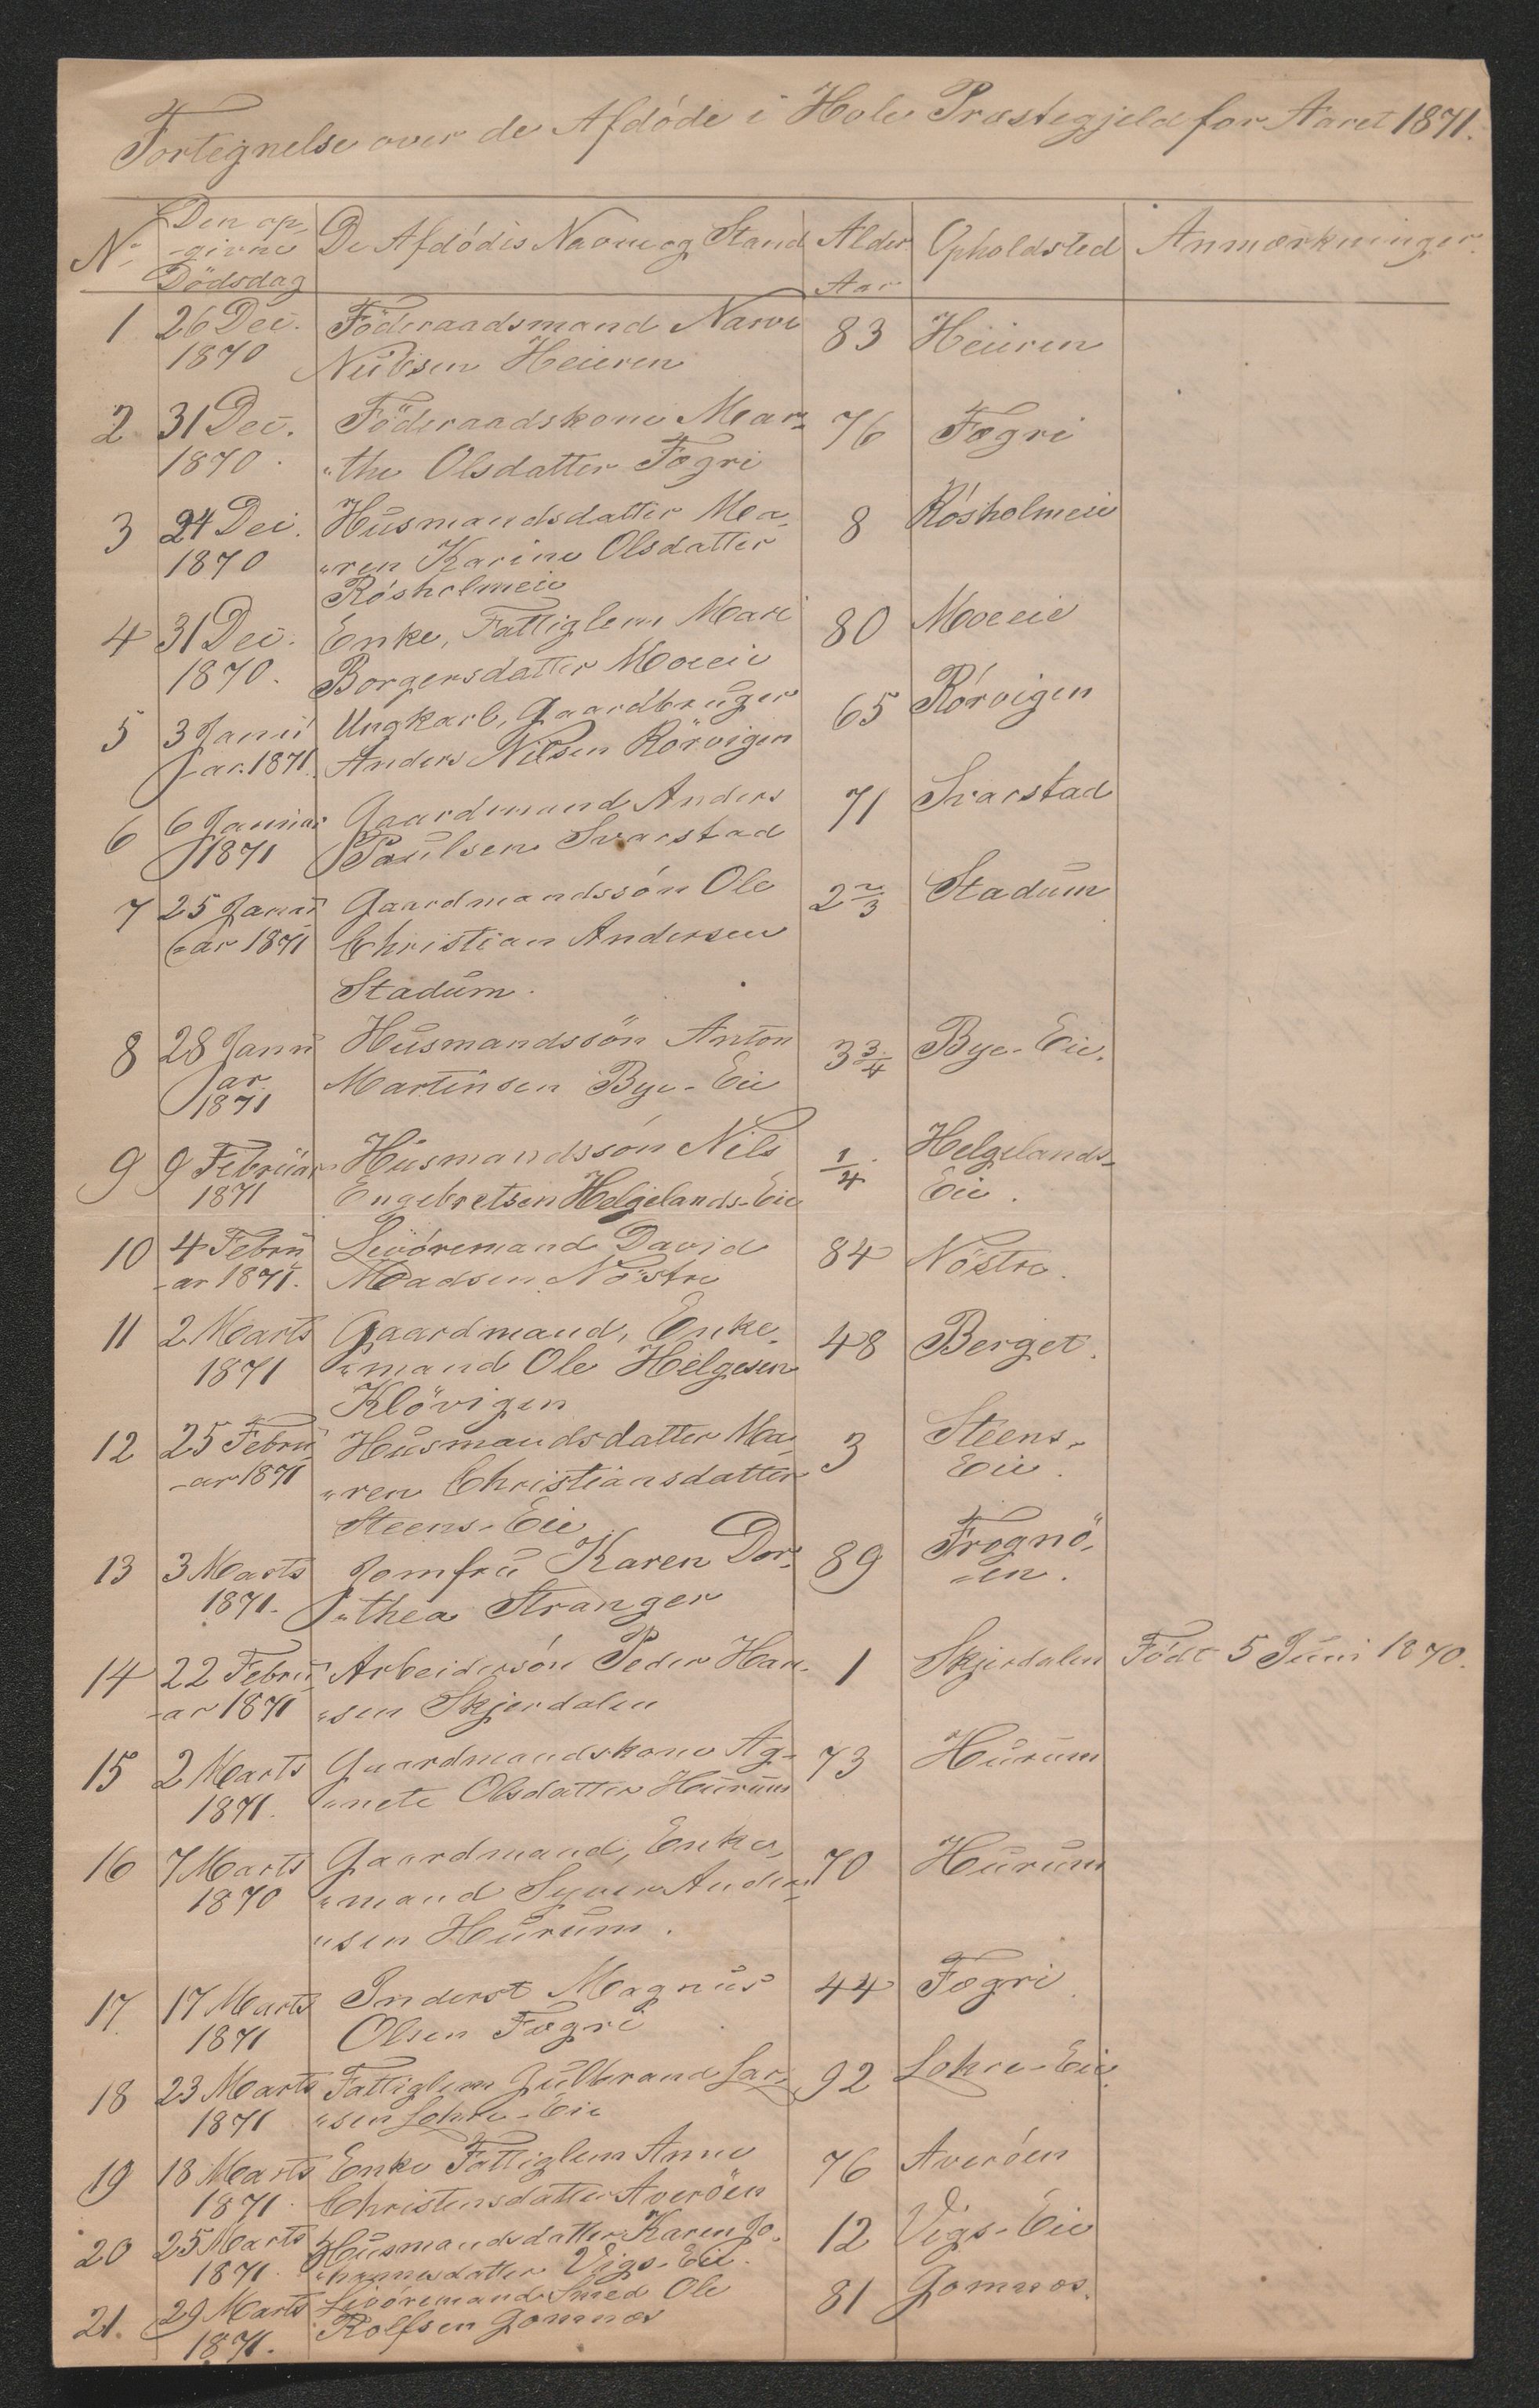 Fortegnelse over de Afdöde i Hole Præstegjeld for Aaret 1871.
No Den op- De Afdödes Navn og Stand Alder Opholdsted Anmærkninger.
-givne
Dödsdag Aar
1 26 Dec. Föderaadsmand Narve 83 Heieren
1870 Nilsen Heieren
2 31 Dec. Föderaadskone Mar- 76 Fægri
1870. "the Olsdatter Fægri
3 24 Dec. Husmandsdatter Ma- 8 Rösholmeie
1870 "ren Karine Olsdatter
Rösholmeie
4 31 Dec. Enke, Fattiglem Mari 80 Moeeie
1870. Borgersdatter Moeeie
5 3 Janu Ungkarl, Gaardbruger 65 Rörvigen
ar. 1871. Anders Nilsen Rörvigen
6 6 Januar Gaardmand Anders 71 Svarstad
1871 Paulsen Svarstad
7 25 Janu Gaardmandssön Ole 2 2/3 Stadum
-ar 1871 Christian Andersen
Stadum.
8 28 Janu Husmandssön Anton 3 3/4 Bye-Eie.
ar. Martinsen Bye-Eie
1871
9 9 Februar Husmandssön Nils 1/4. Helgelands-
1871 Engebretsen Helgelands-Eie Eie.
10 4 Febru Livöremand David 84 Nöstre.
-ar 1871. Madsen Nöstre
11 2 Marts Gaardmand, Enke- 48 Berget.
1871 "mand Ole Helgesen
Klövigen
12 25 Febru Husmandsdatter Ma- 3 Steens-
-ar 1871 "ren Christiansdatter Eie.
Steens-Eie
13 3 Marts Jomfru Karen Dor- 89 Frognö-
1871. "thea Stranger -en.
14 22 Febru Arbeidersön Peder Han- 1 Skjerdalen Födt 5 Juni 1870.
-ar 1871 "sen Skjerdalen
15 2 Marts Gaardmandskone Ag- 73 Hurum
1871. "nete Olsdatter Hurum
16 7 Marts Gaardmand, Enke- 70 Hurum
1870 "mand Syver Ander-
"sen Hurum.
17. 17 Marts Inderst Magnus 44 Fægri
1871 Olsen Fægri
18 23 Marts Fattiglem Gulbrand Lar- 92 Lohre-Eie.
1871 "sen Lohre-Eie
19 18 Marts Enke Fattiglem Anne 76 Averöen
1871. Christensdatter Averöen
20 25 Marts Husmandsdatter Karen Jo- 12 Vigs-Eie
1871. "hannesdatter Vigs-Eie.
21. 29 Marts Livöremand Smed Ole 81 Gomnæs.
1871. Rolfsen Gomnæs